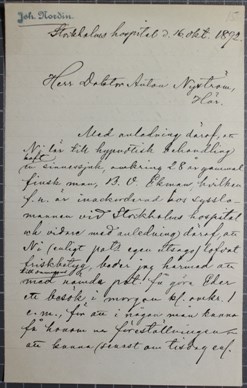 Joh. Nordin.
Stockholms hospital d. 16 okt. 1892
Herr Doktor Anton Nyström,
Här.
Med anledning däraf, att
Ni tar till hypnotisk behandling
haft
en sinnessjuk, omkring 28 år gammal
finsk man, B. V. Ekman, hvilken
f. n. är inackorderad hos sysslo-
mannen vid Stockholms hospital
och vidare med anledning däraf, att
Ni (enligt patts egen utsago) lofvat
friskbetyg, beder jag härmed att
med nämda patt. få göra Eder
ett besök i morgon kl. omkr. 1
e. m., för att i någon man kunna
få honom
att kunna (senast om tisdag